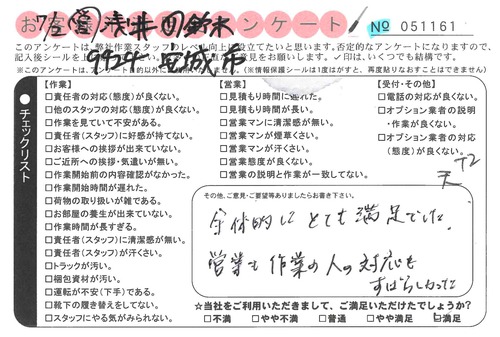 お客様アンケート
7/左 営 浅井 作 鈴木
No 051161
このアンケートは、弊社作業スタッフのレベル向上に役立てたいと思います。否定的なアンケートになりますので、
9924 宮城 市
※このアンケート
(※情報保護シールは1度はがすと、再度貼りなおすことはできません)
チェックリスト
【作業】
□責任者の対応(態度)が良くない。
□他のスタッフの対応(態度)が良くない。
□作業を見ていて不安がある。
□責任者(スタッフ)に好感が持てない。
□お客様への挨拶が出来ていない。
□ご近所への挨拶・気遣いが無い。
□作業開始前の内容確認がなかった。
□作業開始時間が遅れた。
□荷物の取り扱いが雑である。
□お部屋の養生が出来ていない。
□作業時間が長すぎる。
□責任者(スタッフ)に清潔感が無い。
□責任者(スタッフ)が汗くさい。
□トラックが汚い。
□梱包資材が汚い。
□運転が不安(下手)である。
□靴下の履き替えをしてない。
□スタッフにやる気がみられない。
【営業】
□見積もり時間に遅れた。
□見積もり時間が長い。
□営業マンに清潔感が無い。
□営業マンが煙草くさい。
□営業マンが汗くさい。
□営業態度が良くない。
□営業の説明と作業が一致してない。
【受付・その他】
□電話の対応が良くない。
□オプション業者の説明
・作業が良くない。
□オプション業者の対応
(態度)が良くない。
T2
天
その他、ご意見・ご要望等ありましたらお書き下さい。
全体的に とても 満足でした。
営業も 作業の人の対応も
すばらしかった
☆当社をご利用いただきまして、ご満足いただけたでしょうか?
□不満 □やや不満 □普通 □やや満足 ☑満足